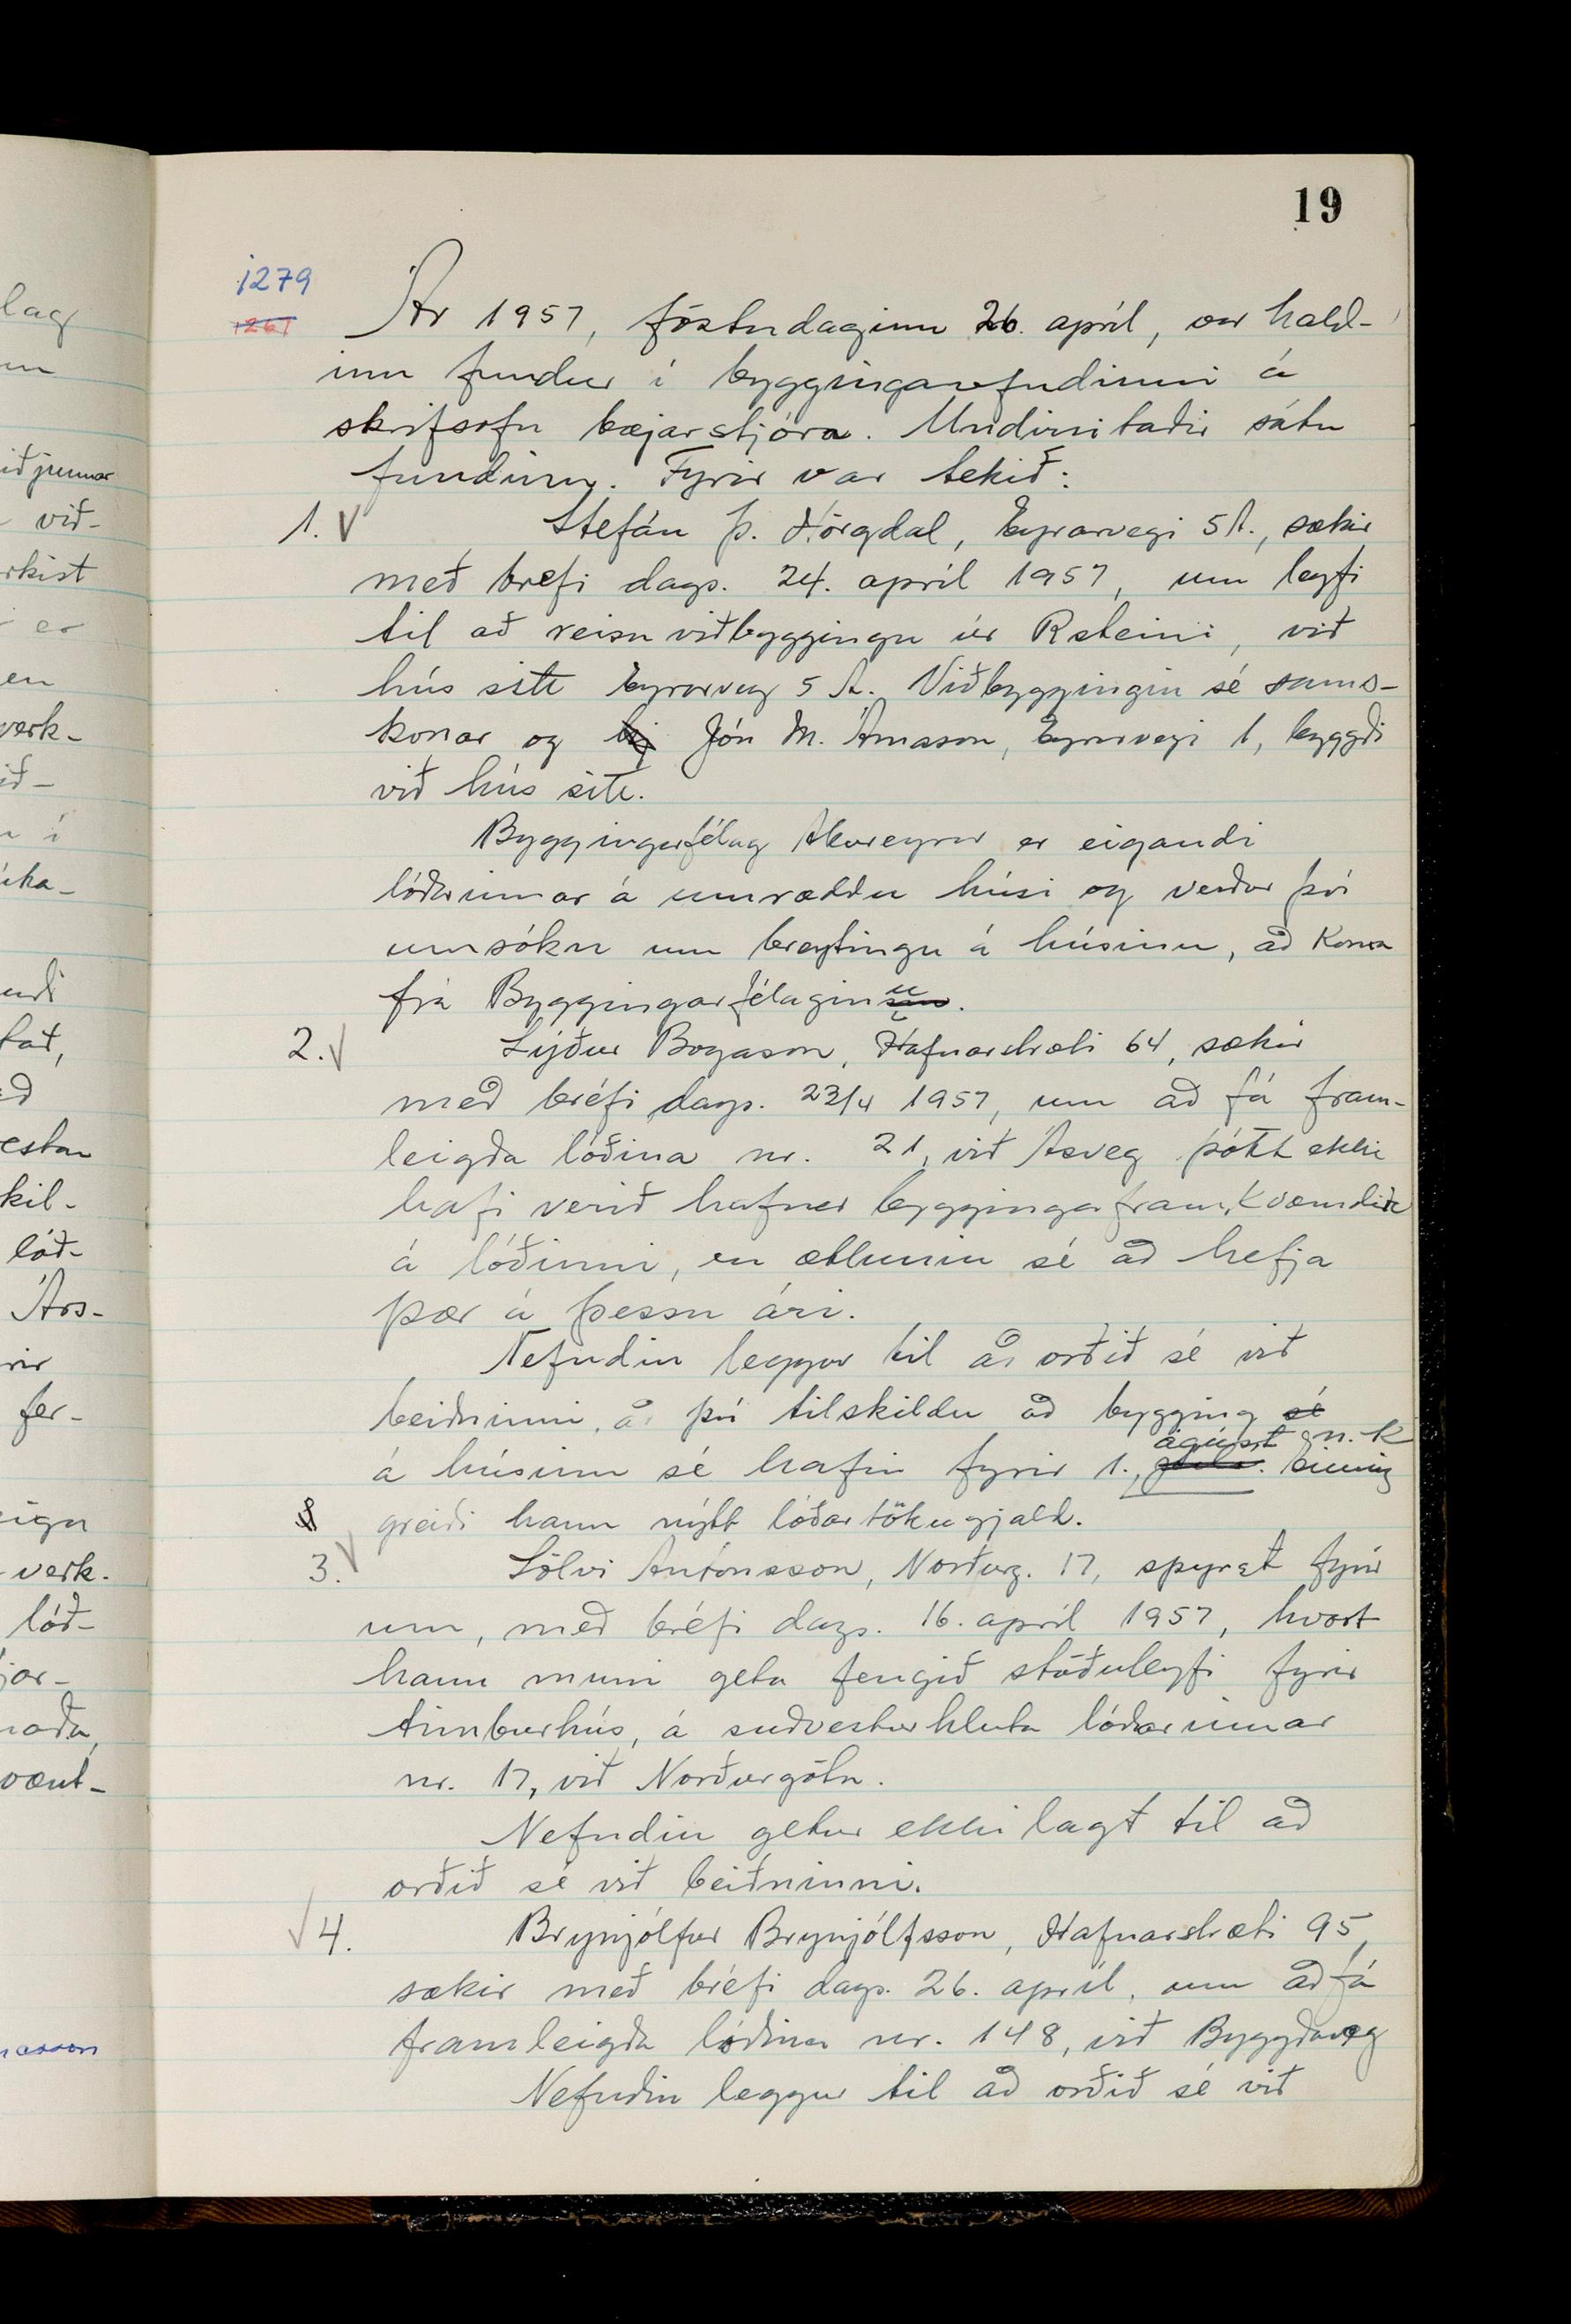 19
1279
1261
Ár 1957, föstudaginn 26. apríl, var hald-
inn fundur í bygginganefndinni á
skrifsofu bæjarstjóra. Undirritaðir sátu
fundinn. Fyrir var tekið:
1. Stefán Þ. Hörgdal, Eyrarvegi 5A., sækir
með brefi dags. 24. apríl 1957, um leyfi
til að reisa viðbyggingu úr Rsteini, við
hús sitt Eyrarveg 5 A. Viðbyggingin sé sams-
konar og Jón M. Árnason, Eyrarvegi 1, byggði
við hús sitt.
Byggingarfélag Akureyrar er eigandi
lóðarinnar á umræddu húsi og verður því
umsókn um breytingu á húsinu, að koma
frá Byggingarfélaginu.
2. Lýður Bogason, Hafnarstræti 64, sækir
með bréfi dags. 23/4 1957, um að fá fram-
leigða lóðina nr. 21, við Ásveg þótt ekki
hafi verið hafnar byggingaframkvæmdir
á lóðinni, en ætlunin sé að hefja
þær á þessu ári.
Nefndin leggur til að orðið sé við
beiðninni, að því tilskildu að bygging sé
á húsinu sé hafin fyrir 1. ágúst n.k
greiði hann nýtt lóðartökugjald.
3. Sölvi Antonsson, Norðurg. 17, spyrst fyrir
um, með bréfi dags. 16. apríl 1957, hvort
hann muni geta fengið stöðuleyfi fyrir
timburhús, á suðvesturhluta lóðarinnar
nr. 17, við Norðurgötu.
Nefndin getur ekki lagt til að
orðið sé við beiðninni.
4. Brynjólfur Brynjólfsson, Hafnarstræti 95,
sækir með bréfi dags. 26. apríl, um að fá
framleigða lóðina nr. 148, við Byggðaveg
Nefndin leggur til að orðið sé við